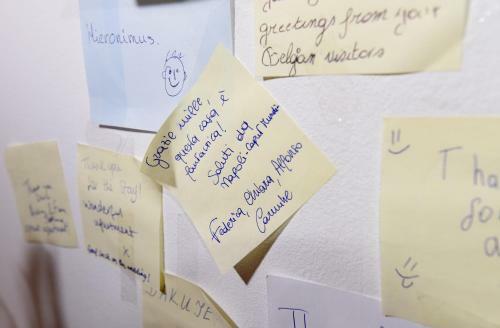 Hieronimus.
greetings from your
Belgian visitors
Grazie mille,
questa casa è
fantastica!
Saluti da
Napoli-caput mundi
Federica, Chiara, Alfonso
Carmine
Thank you
for the stay!
wonderful
apartment
x
Thank you
ĎAKUJE
Tha
fo
a